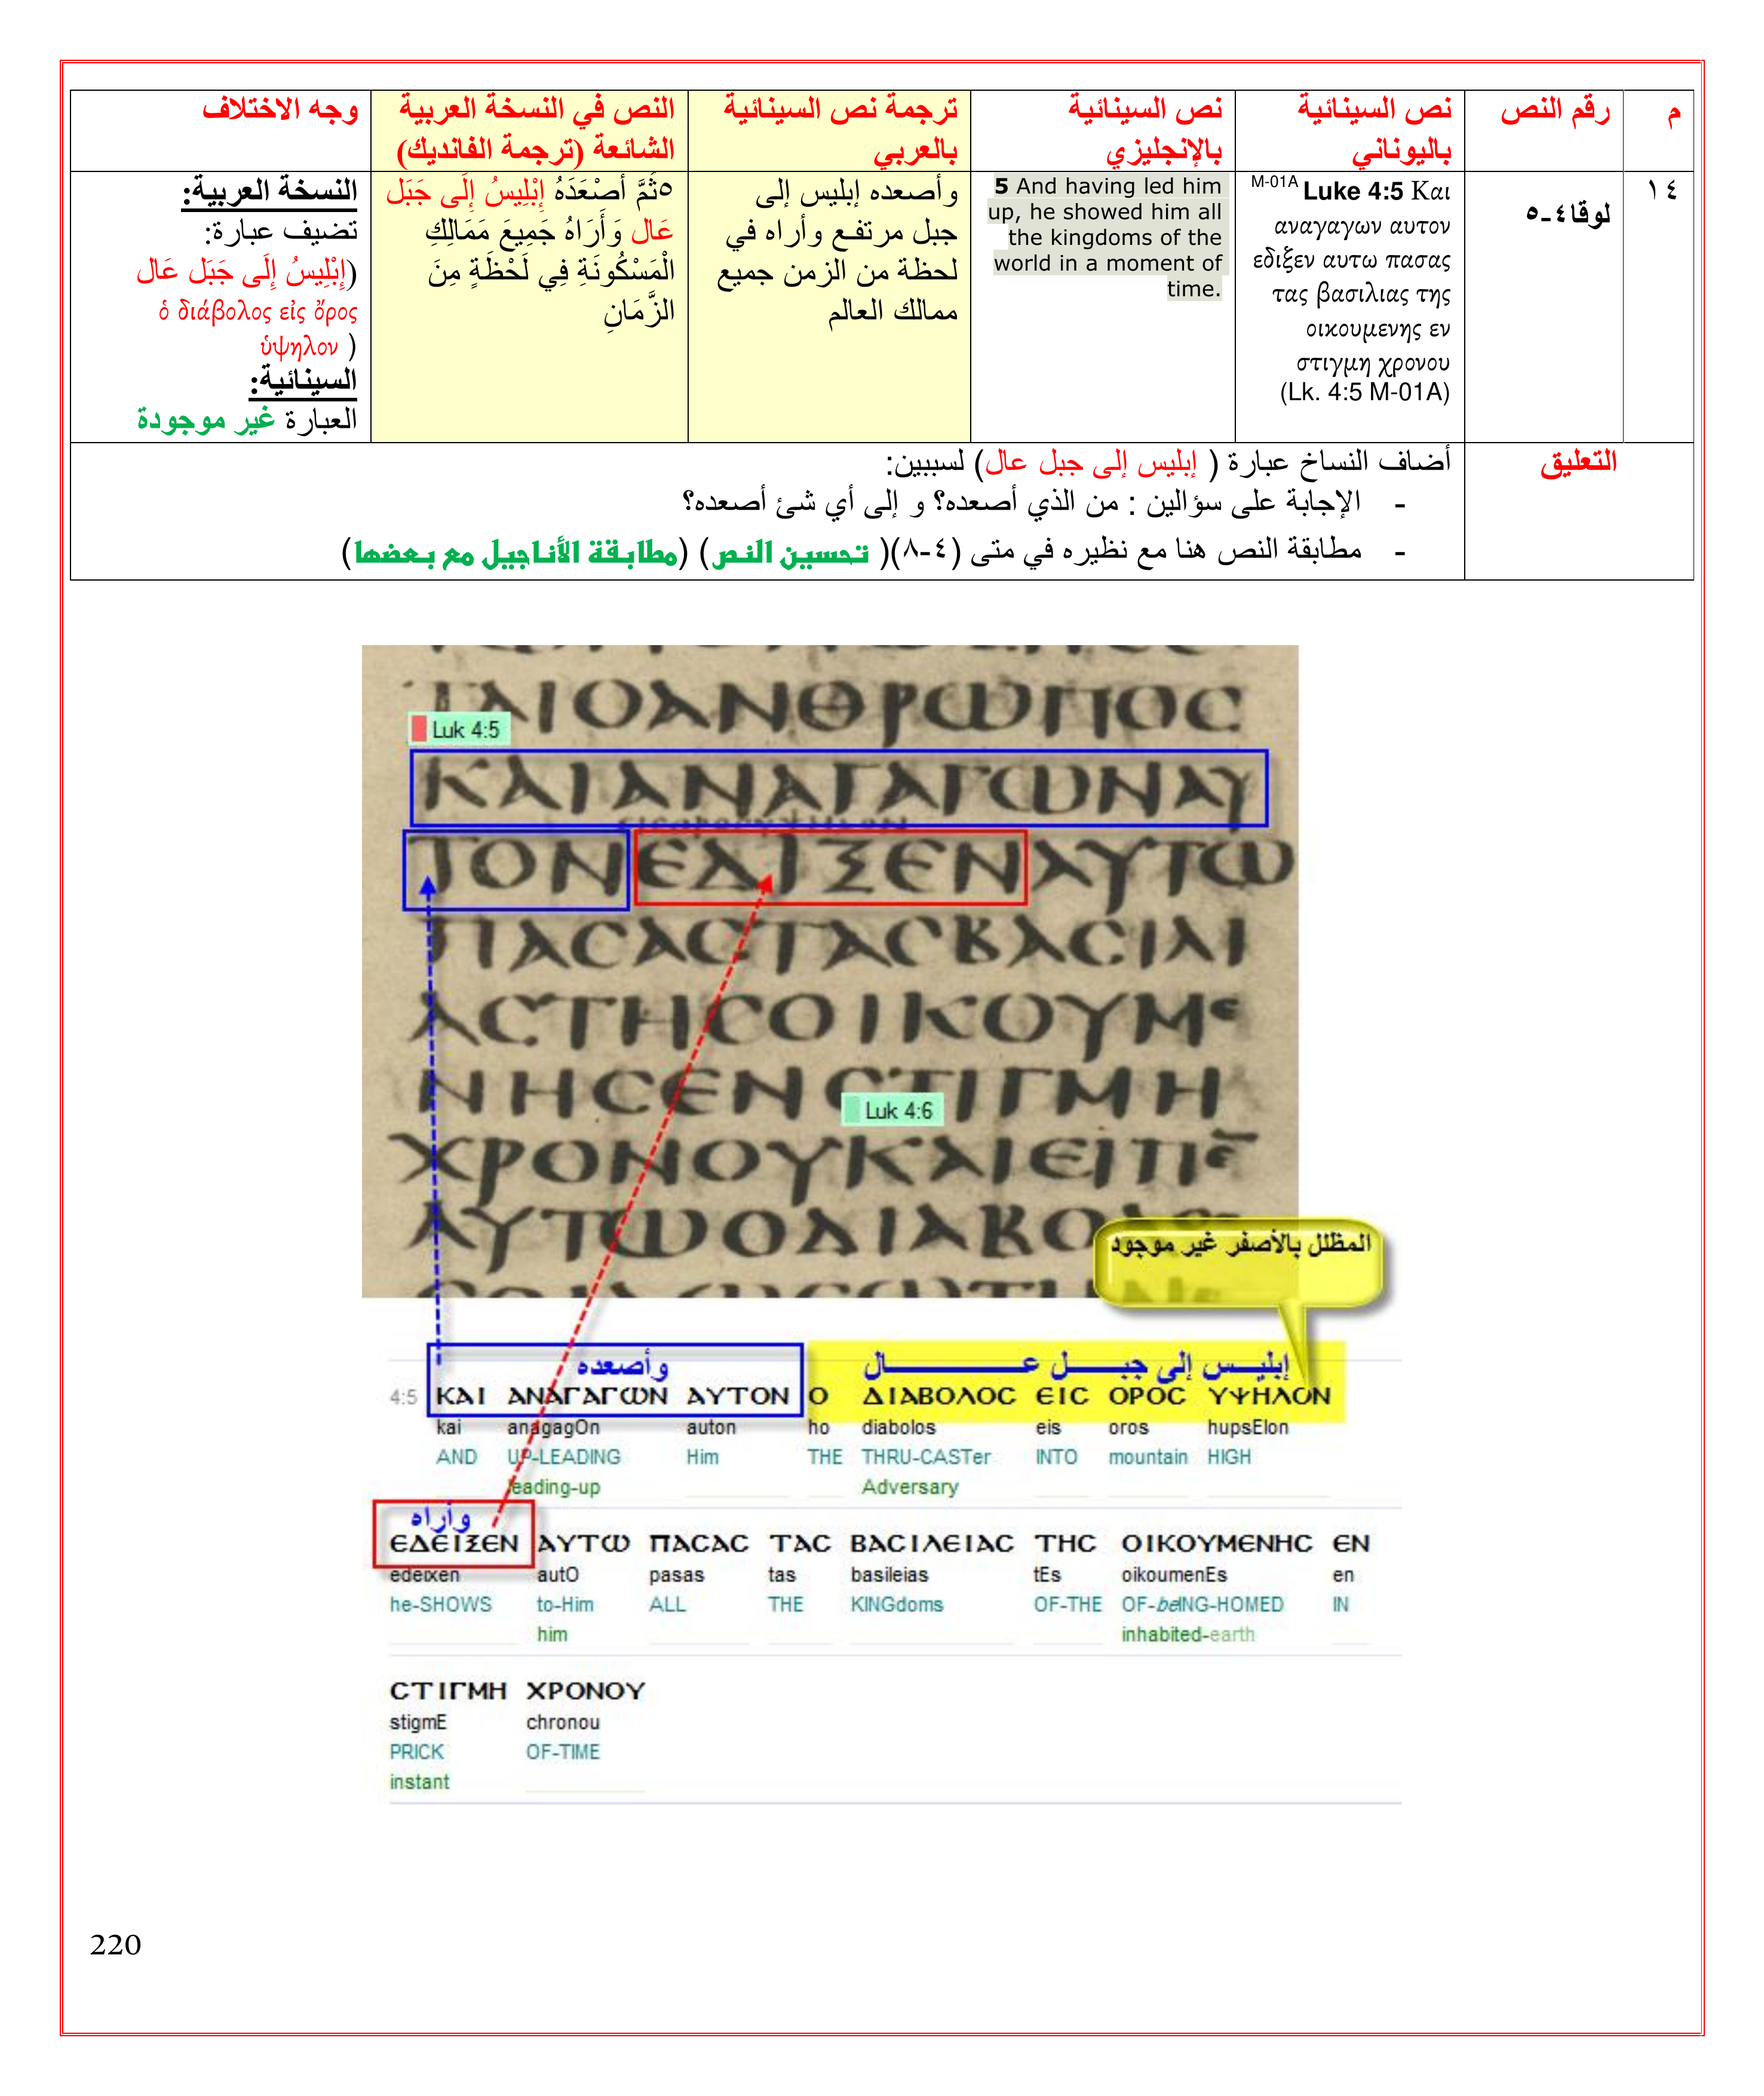 م
رقم النص
نص السينائية
باليوناني
نص السينائية
بالإنجليزي
ترجمة نص السينائية
بالعربي
النص في النسخة العربية
الشائعة (ترجمة الفانديك)
وجه الاختلاف
١٤
لوقا٤-٥
M-01A Luke 4:5 Και
αναγαγων αυτον
εδιξεν αυτω πασας
τας βασιλιας της
οικουμενης εν
στιγμη χρονου
(Lk. 4:5 M-01A)
5 And having led him
up, he showed him all
the kingdoms of the
world in a moment of
time.
وأصعده إبليس إلى
جبل مرتفع وأراه في
لحظة من الزمن جميع
ممالك العالم
٥ثُمَّ أَصْعَدَهُ إِبْلِيسُ إِلَى جَبَل
عَال وَأَرَاهُ جَمِيعَ مَمَالِكِ
الْمَسْكُونَةِ فِي لَحْظَةٍ مِنَ
الزَّمَانِ
النسخة العربية:
تضيف عبارة:
(إِبْلِيسُ إِلَى جَبَل عَال
ὁ διάβολος εἰς ὄρος
ὑψηλον )
السينائية:
العبارة غير موجودة
التعليق
أضاف النساخ عبارة ( إبليس إلى جبل عال) لسببين:
- الإجابة على سؤالين : من الذي أصعده؟ و إلى أي شئ أصعده؟
- مطابقة النص هنا مع نظيره في متى (٤-٨)( تحسين النص) (مطابقة الأناجيل مع بعضها)
ΤΑΙΟΑΝΘΡΩΠΟϹ
Luk 4:5
ΚΑΙΑΝΑΓΑΓΩΝΑΥ
ΤΟΝΕΔΙΞΕΝΑΥΤΩ
ΠΑϹΑϹΤΑϹΒΑϹΙΛΙ
ΑϹΤΗϹΟΙΚΟΥΜΕ
ΝΗϹΕΝϹΤΙΓΜΗ
Luk 4:6
ΧΡΟΝΟΥΚΑΙΕΙΠΕ̅
ΑΥΤΩΟΔΙΑΒΟΛΟϹ
المظلل بالأصفر غير موجود
وأصعده
إبليس إلى جبل عال
4:5 ΚΑΙ ΑΝΑΓΑΓΩΝ ΑΥΤΟΝ Ο ΔΙΑΒΟΛΟϹ ΕΙϹ ΟΡΟϹ ΥΨΗΛΟΝ
kai anagagOn auton ho diabolos eis oros hupsElon
AND UP-LEADING Him THE THRU-CASTer INTO mountain HIGH
leading-up Adversary
وأراه
ΕΔΕΙΞΕΝ ΑΥΤΩ ΠΑϹΑϹ ΤΑϹ ΒΑϹΙΛΕΙΑϹ ΤΗϹ ΟΙΚΟΥΜΕΝΗϹ ΕΝ
edeixen autO pasas tas basileias tEs oikoumenEs en
he-SHOWS to-Him ALL THE KINGdoms OF-THE OF-beING-HOMED IN
him inhabited-earth
ϹΤΙΓΜΗ ΧΡΟΝΟΥ
stigmE chronou
PRICK OF-TIME
instant
220